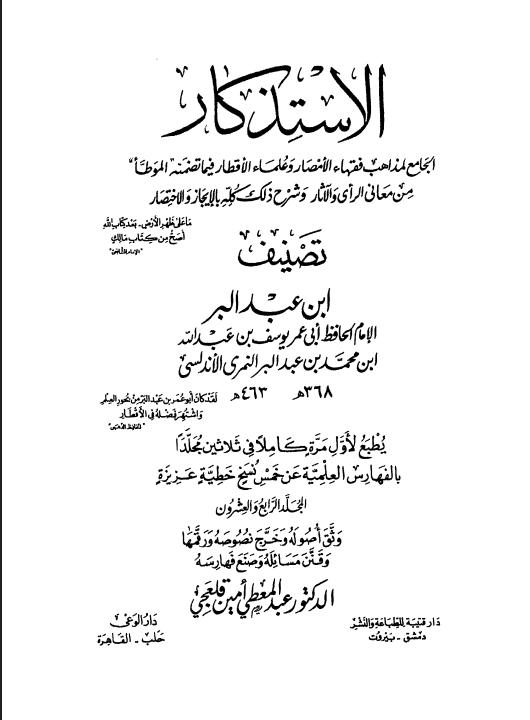 الاستذكار
الجامع لمذاهب فقهاء الأمصار وعلماء الأقطار فيما تضمنه "الموطأ"
من معاني الرأي والآثار وشرح ذلك كله بالإيجاز والاختصار
ما على ظهر الأرض - بعد كتاب الله
أصح من كتاب مالك
"الإمام الشافعي"
تصنيف
ابن عبد البر
الإمام الحافظ أبي عمر يوسف بن عبد الله
ابن محمد بن عبد البر النمري الأندلسي
٣٦٨هـ ٤٦٣هـ
لقد كان أبو عمر بن عبد البر من بحور العلم
واشتهر فضله في الأقطار
"الحافظ الذهبي"
يُطبَعُ لأَوَّلِ مَرَّةٍ كَامِلاً في ثَلاثِين مُجَلَّدًا
بالفهارس العِلميَّة عَن خَمْسِ نُسَخٍ خَطِيَّةٍ عَزيزَةٍ
المجلد الرابع والعشرون
وثَّق أصوله وخرّج نصوصه ورقّمها
وقنّن مسائله وصنع فهارسه
الدكتور عبد المعطي أمين قلعجي
دار قتيبة للطباعة والنشر
دمشق - بيروت
دار الوعي
حلب - القاهرة